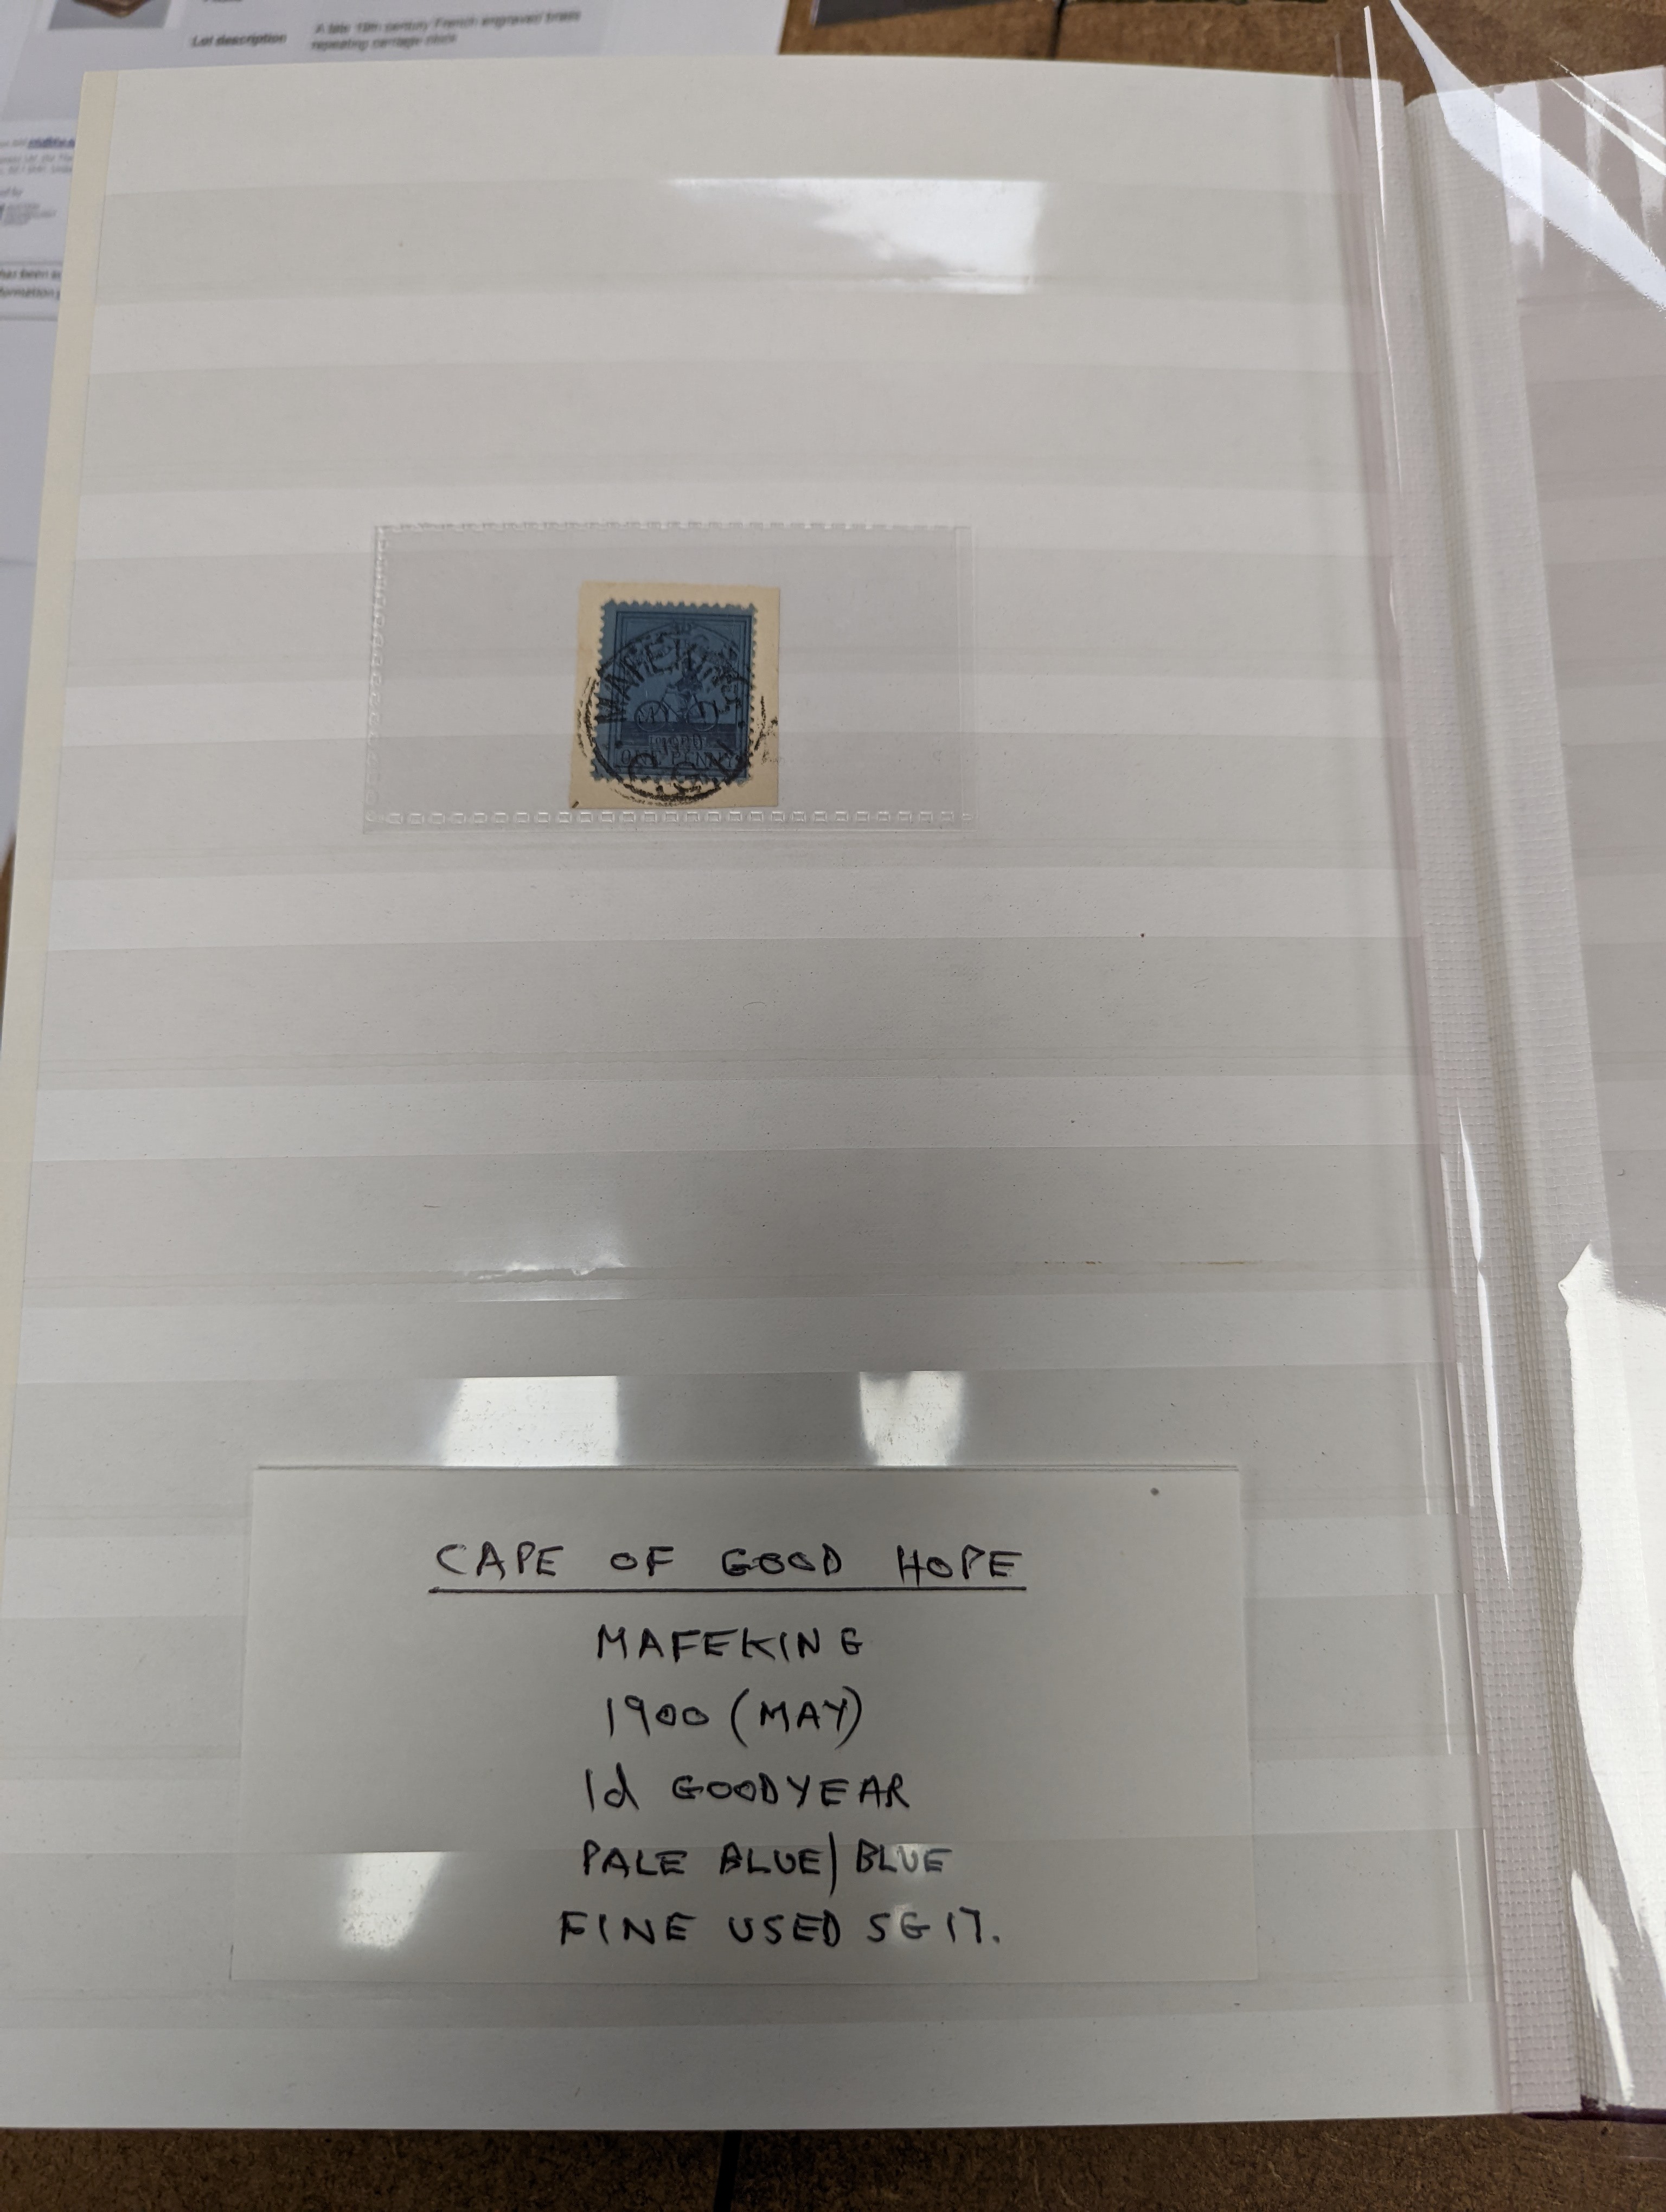 Lot description
A late 19th century French engraved brass
repeating carriage clock
has been
MAFEKING
1900
ONE PENNY
C.G.H
CAPE OF GOOD HOPE
MAFEKING
1900 (MAY)
1d GOODYEAR
PALE BLUE/BLUE
FINE USED SG 17.